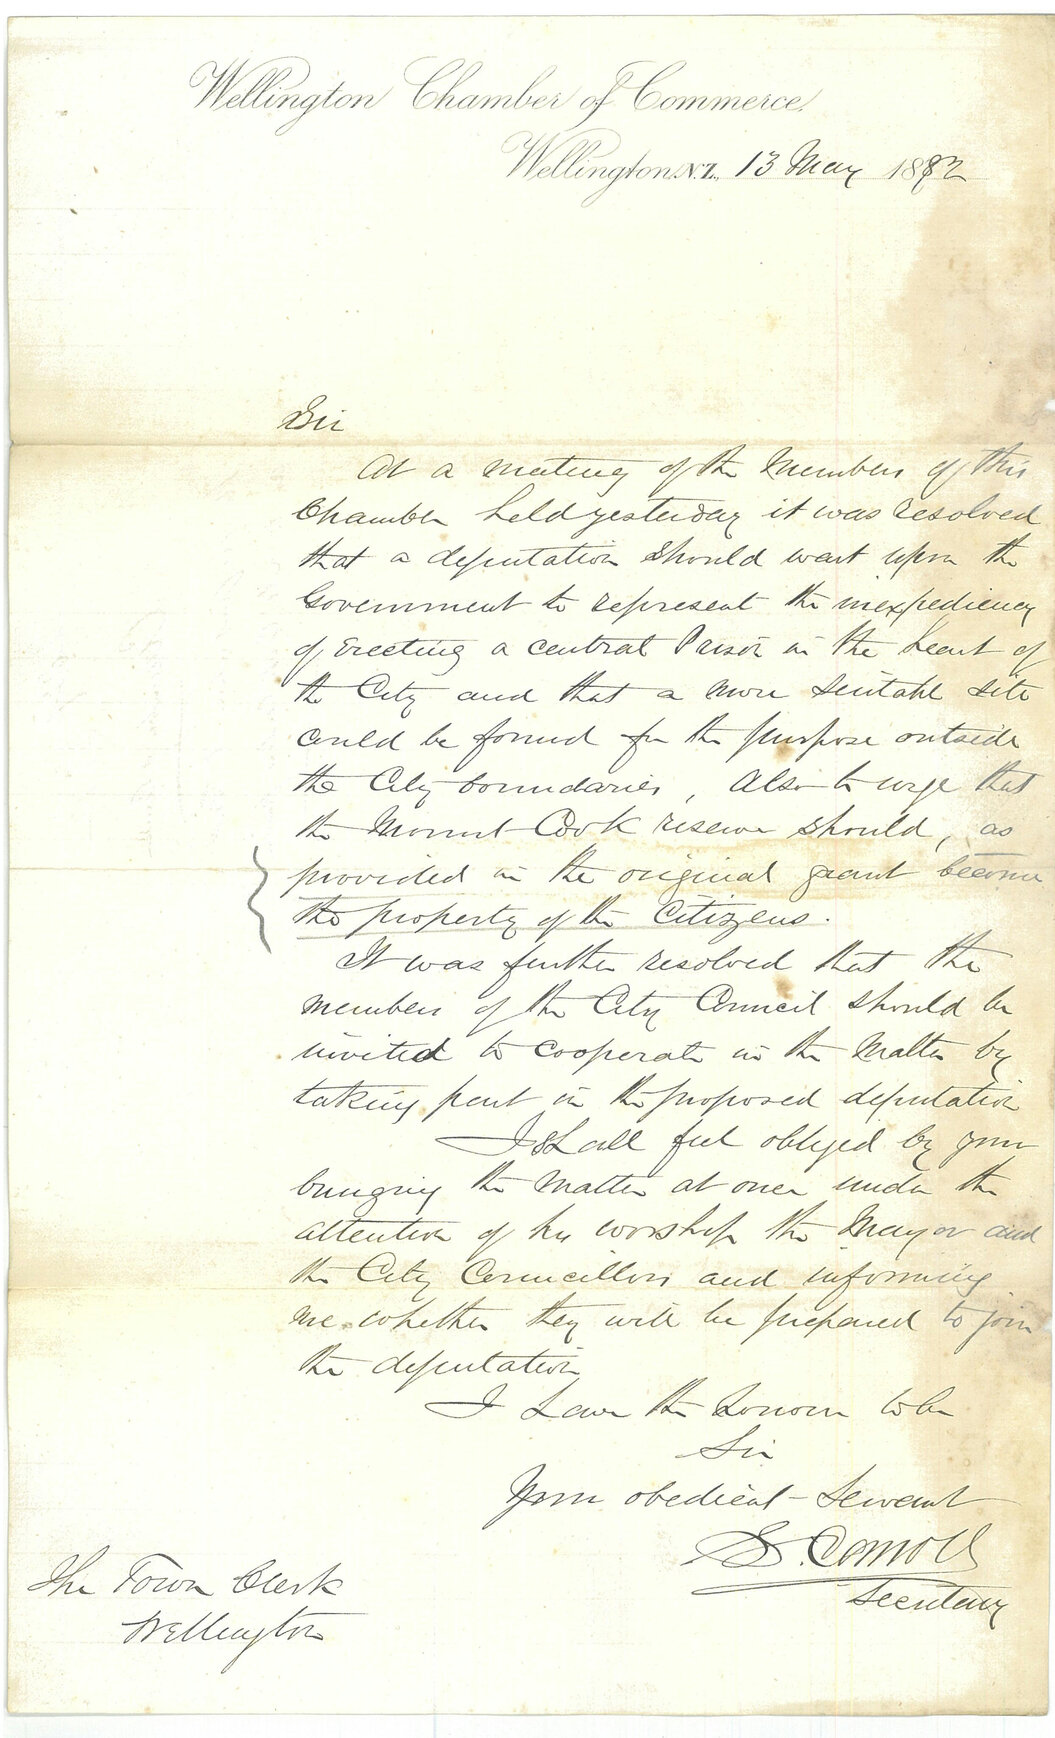 Wellington Chamber of Commerce
Wellington N.Z., 13 May 1882
Sir
At a meeting of the Members of this
Chamber held yesterday it was resolved
that a deputation should wait upon the
Government to represent the inexpediency
of Erecting a central Prison in the heart of
the City and that a more suitable site
could be found for the purpose outside
the City boundaries, Also to urge that
the Mount Cook reserve should, as
provided in the original grant become
the property of the Citizens.
It was further resolved that the
members of the City Council should be
invited to cooperate in the Matter by
taking part in the proposed deputation
I shall feel obliged by your
bringing the matter at once under the
attention of his worship the Mayor and
the City Councillors and informing
me whether they will be prepared to join
the deputation
I have the honour to be
Sir
Your obedient Servant
S. Carroll
Secretary
The Town Clerk
Wellington